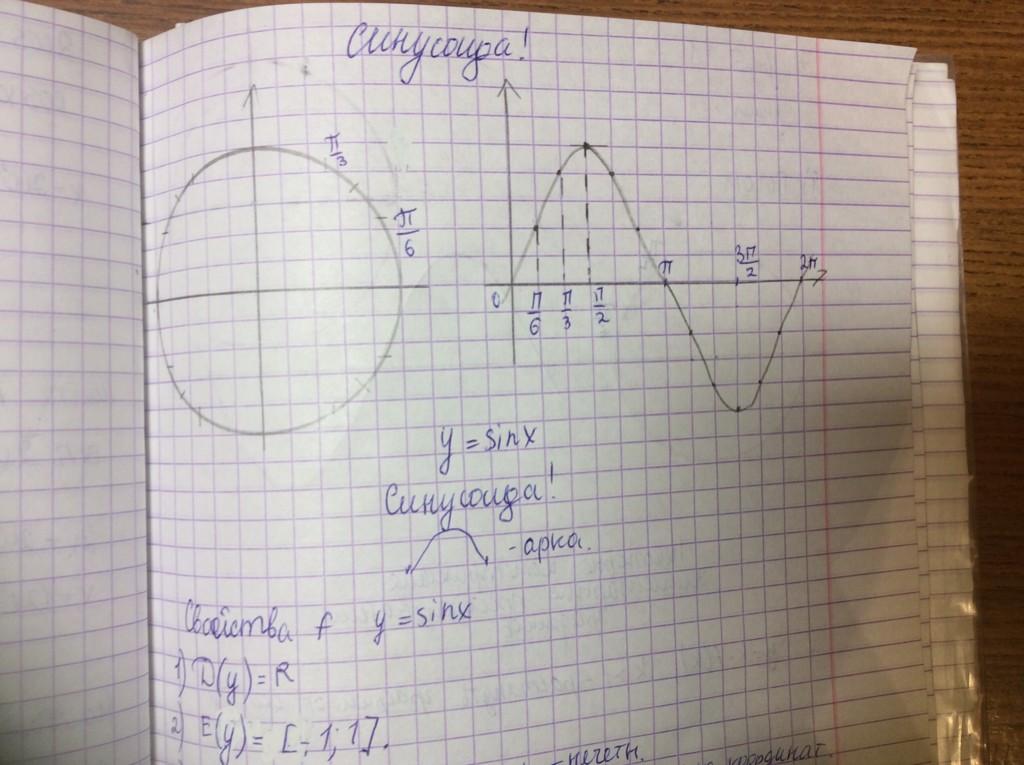 Синусоида!
π/3
π/6
3π/2
2π
π
0
π/6
π/3
π/2
y = sinx
Синусоида!
- арка.
Свойства f y = sinx
1) D(y) = R
2) E(y) = [-1; 1].
- нечетн.
координат.